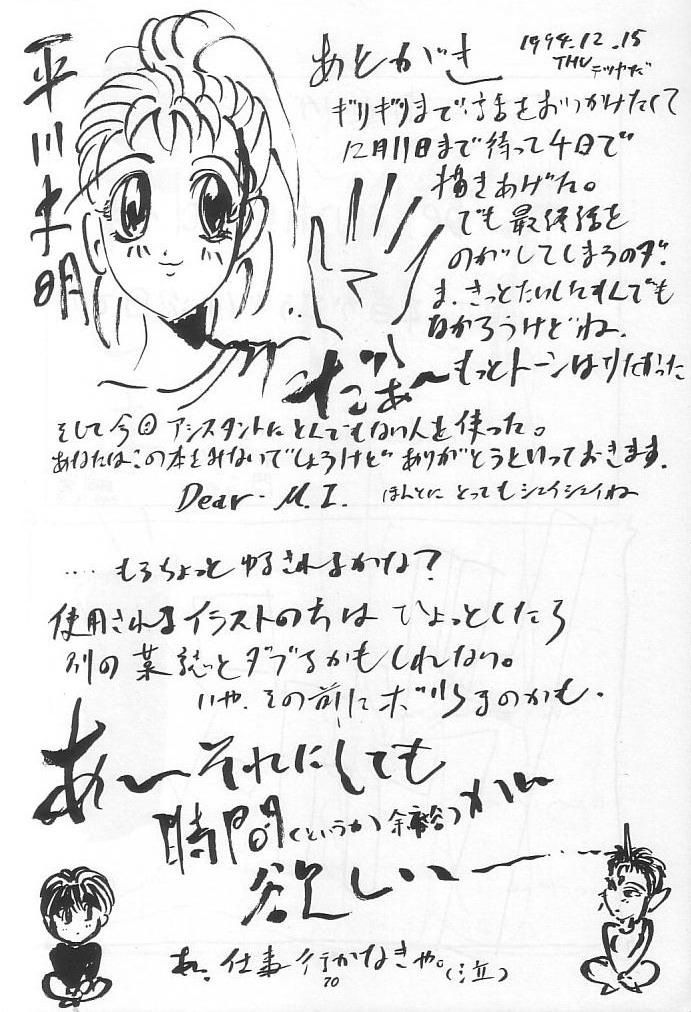 あとがき
1994.12.15
THU
ギリギリまで話をおいかけたくて
12月11日まで待って4日で
描きあげた。
でも最終話を
のがしてしまうのダ。
ま、きっとたいしたもんでも
なかろうけどね、
もっとトーンはりたかった
だぁ〜
そして今回アシスタントにとんでもない人を使った。
あなたはこの本をみないでしょうけどありがとうといっておきます。
Dear・M.I. ほんとにとってもシェイシェイね
‥‥もうちょっとゆるされるかな?
使用されるイラストの方はひょっとしたら
別の 誌とダブるかもしれない。
いや、その前にボツるのかも・
あ〜それにしても
時間(というか余裕)が
欲しい―
あ、仕事行かなきゃ。(泣)
70
平川
明